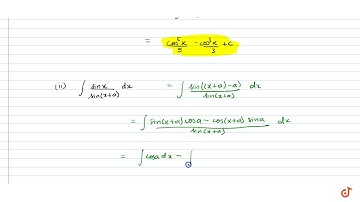 = cos⁵x/5 - cos³x/3 + c
(ii) ∫ sinx/sin(x+a) dx = ∫ sin((x+a)-a)/sin(x+a) dx
= ∫ sin(x+a) cosa - cos(x+a) sina/sin(x+a) dx
= ∫ cosa dx - ∫